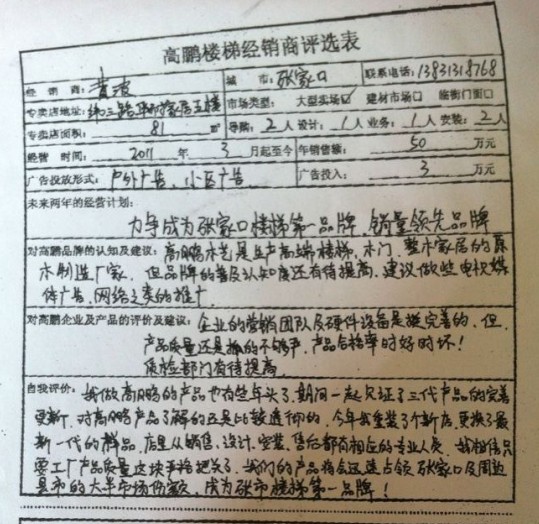 高鹏楼梯经销商评选表
经销商：黄波 城市：张家口 联系电话：13831318768
专卖店地址：纬三路 家居五楼 市场类型：大型卖场☑ 建材市场口 临街门面口
专卖店面积：81 ㎡ 导购：2人 设计：1人 业务：1人 安装：2人
经营时间：2011年3月起至今 年销售额：50万元
广告投放形式：户外广告、小区广告 广告投入：3万元
未来两年的经营计划：
力争成为张家口楼梯第一品牌，销量领先品牌
对高鹏品牌的认知及建议：高鹏木艺是生产高端楼梯、木门、整木家居的原
木制造厂家，但品牌的普及认知度还有待提高，建议做些电视媒
体广告、网络之类的推广
对高鹏企业及产品的评价及建议：企业的营销团队及硬件设备是挺完善的，但
产品质量还是抓的不够严，产品合格率时好时坏！
质检部门有待提高
自我评价：我做高鹏的产品也有些年头了，期间一起见证了三代产品的完善
更新，对高鹏产品了解的还是比较透彻的，今年我重装了个新店，更换了最
新一代的样品，店里从销售、设计、安装、售后都有相应的专业人员，我相信只
要工厂产品质量这块严格把关了，我们的产品将会迅速占领张家口及周边
县市的大半市场份额，成为张市楼梯第一品牌！